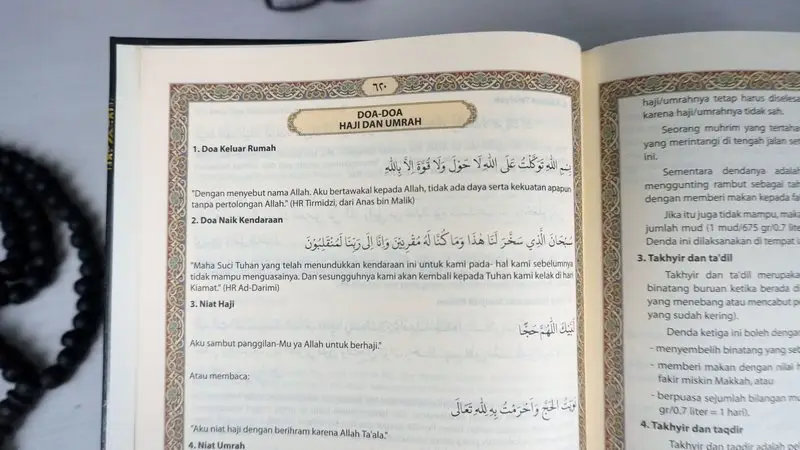 ٦٢٠
DOA-DOA
HAJI DAN UMRAH
1. Doa Keluar Rumah
بِسْمِ اللهِ تَوَكَّلْتُ عَلَى اللهِ لَا حَوْلَ وَلَا قُوَّةَ اِلَّا بِاللهِ
"Dengan menyebut nama Allah. Aku bertawakal kepada Allah, tidak ada daya serta kekuatan apapun
tanpa pertolongan Allah." (HR Tirmidzi, dari Anas bin Malik)
2. Doa Naik Kendaraan
سُبْحَانَ الَّذِي سَخَّرَ لَنَا هٰذَا وَمَا كُنَّا لَهُ مُقْرِنِيْنَ وَاِنَّا اِلَى رَبِّنَا لَمُنْقَلِبُوْنَ
"Maha Suci Tuhan yang telah menundukkan kendaraan ini untuk kami pada- hal kami sebelumnya
tidak mampu menguasainya. Dan sesungguhnya kami akan kembali kepada Tuhan kami kelak di hari
Kiamat." (HR Ad-Darimi)
3. Niat Haji
لَبَّيْكَ اللّٰهُمَّ حَجًّا
Aku sambut panggilan-Mu ya Allah untuk berhaji."
Atau membaca:
نَوَيْتُ الْحَجَّ وَاَحْرَمْتُ بِهِ لِلّٰهِ تَعَالَى
"Aku niat haji dengan berihram karena Allah Ta'ala."
4. Niat Umrah
haji/umrahnya tetap harus
karena haji/umrahnya tidak sah.
Seorang muhrim yang
yang merintangi di tengah jalan
ini.
Sementara dendanya adalah
menggunting rambut sebagai
dengan memberi makan kepada
Jika itu juga tidak mampu,
jumlah mud (1 mud/675 gr/0.7
Denda ini dilaksanakan di tempat
3. Takhyir dan ta'dil
Takhyir dan ta'dil
binatang buruan ketika berada
yang menebang atau mencabut
yang sudah kering).
Denda ketiga ini boleh dengan
- menyembelih binatang yang
- memberi makan dengan nilai
fakir miskin Makkah, atau
- berpuasa sejumlah bilangan
gr/0.7 liter = 1 hari).
4. Takhyir dan taqdir
Takhyir dan taqdir adalah